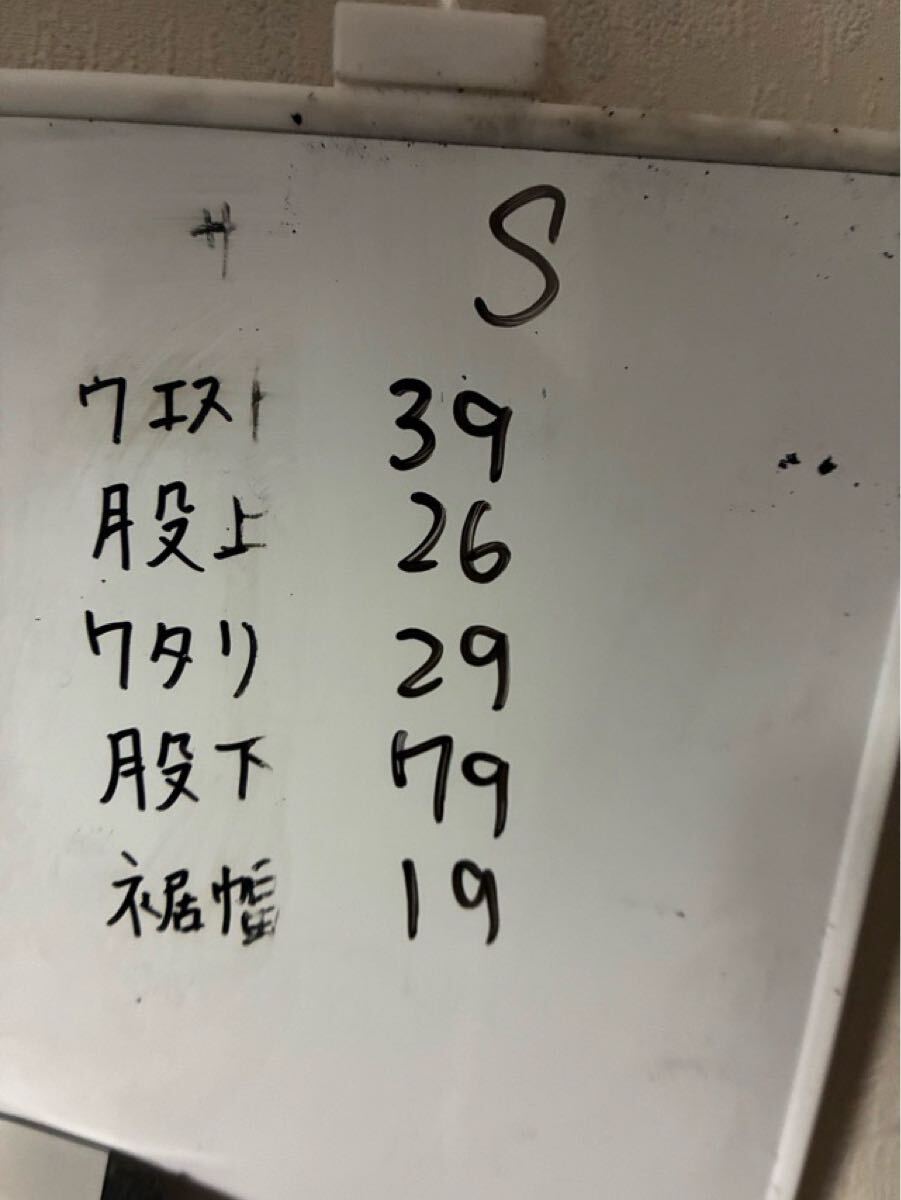 S
ウエスト 39
股上 26
ワタリ 29
股下 79
裾幅 19